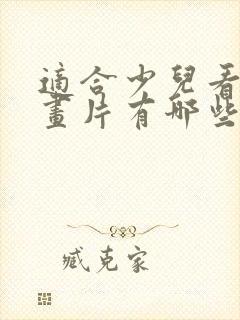 適合少兒看
畫片有哪些
臧克家